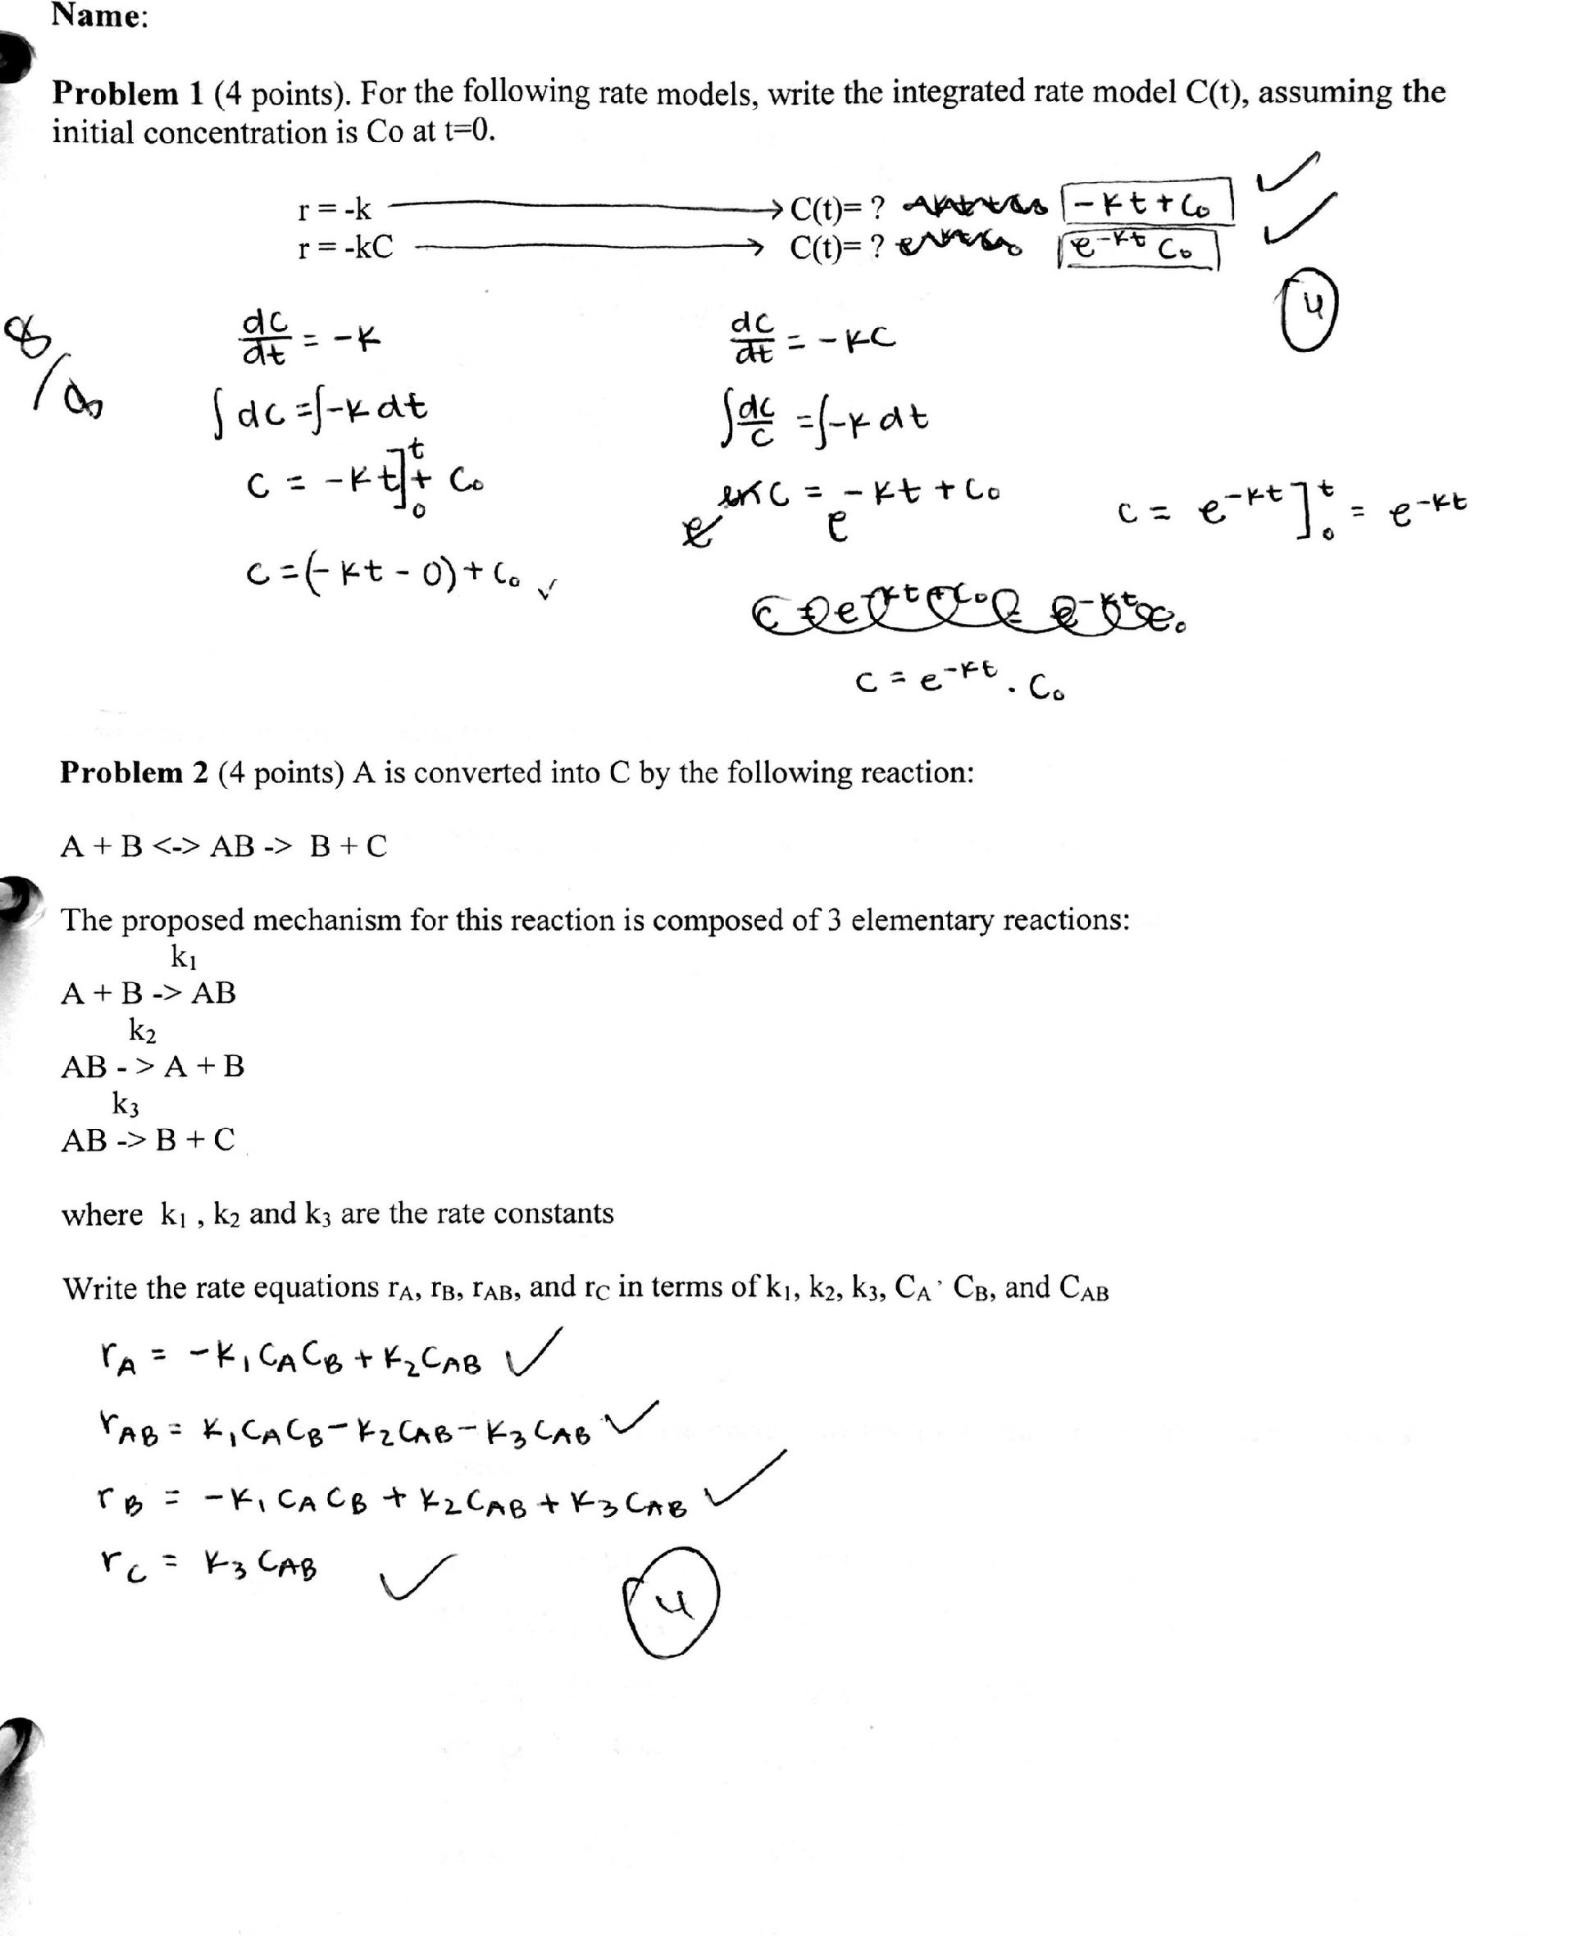 Name:
Problem 1 (4 points). For the following rate models, write the integrated rate model C(t), assuming the
initial concentration is Co at t=0.
r = -k → C(t)= ? -kt + C₀ ✓
r = -kC → C(t)= ? e^-kt C₀ ✓
4
8/8
dc/dt = -k
∫dc = ∫-k dt
C = -kt]₀^t + C₀
C = (-kt - 0) + C₀ ✓
dc/dt = -kC
∫dc/c = ∫-k dt
e^ln C = e^-kt + C₀
C = e^-kt]₀^t = e^-kt
C = e^-kt · C₀
Problem 2 (4 points) A is converted into C by the following reaction:
A + B <-> AB -> B + C
The proposed mechanism for this reaction is composed of 3 elementary reactions:
k₁
A + B -> AB
k₂
AB - > A + B
k₃
AB -> B + C
where k₁ , k₂ and k₃ are the rate constants
Write the rate equations rA, rB, rAB, and rC in terms of k₁, k₂, k₃, CA, CB, and CAB
rA = -k₁CACB + k₂CAB ✓
rAB = k₁CACB - k₂CAB - k₃CAB ✓
rB = -k₁CACB + k₂CAB + k₃CAB ✓
rC = k₃CAB ✓
4